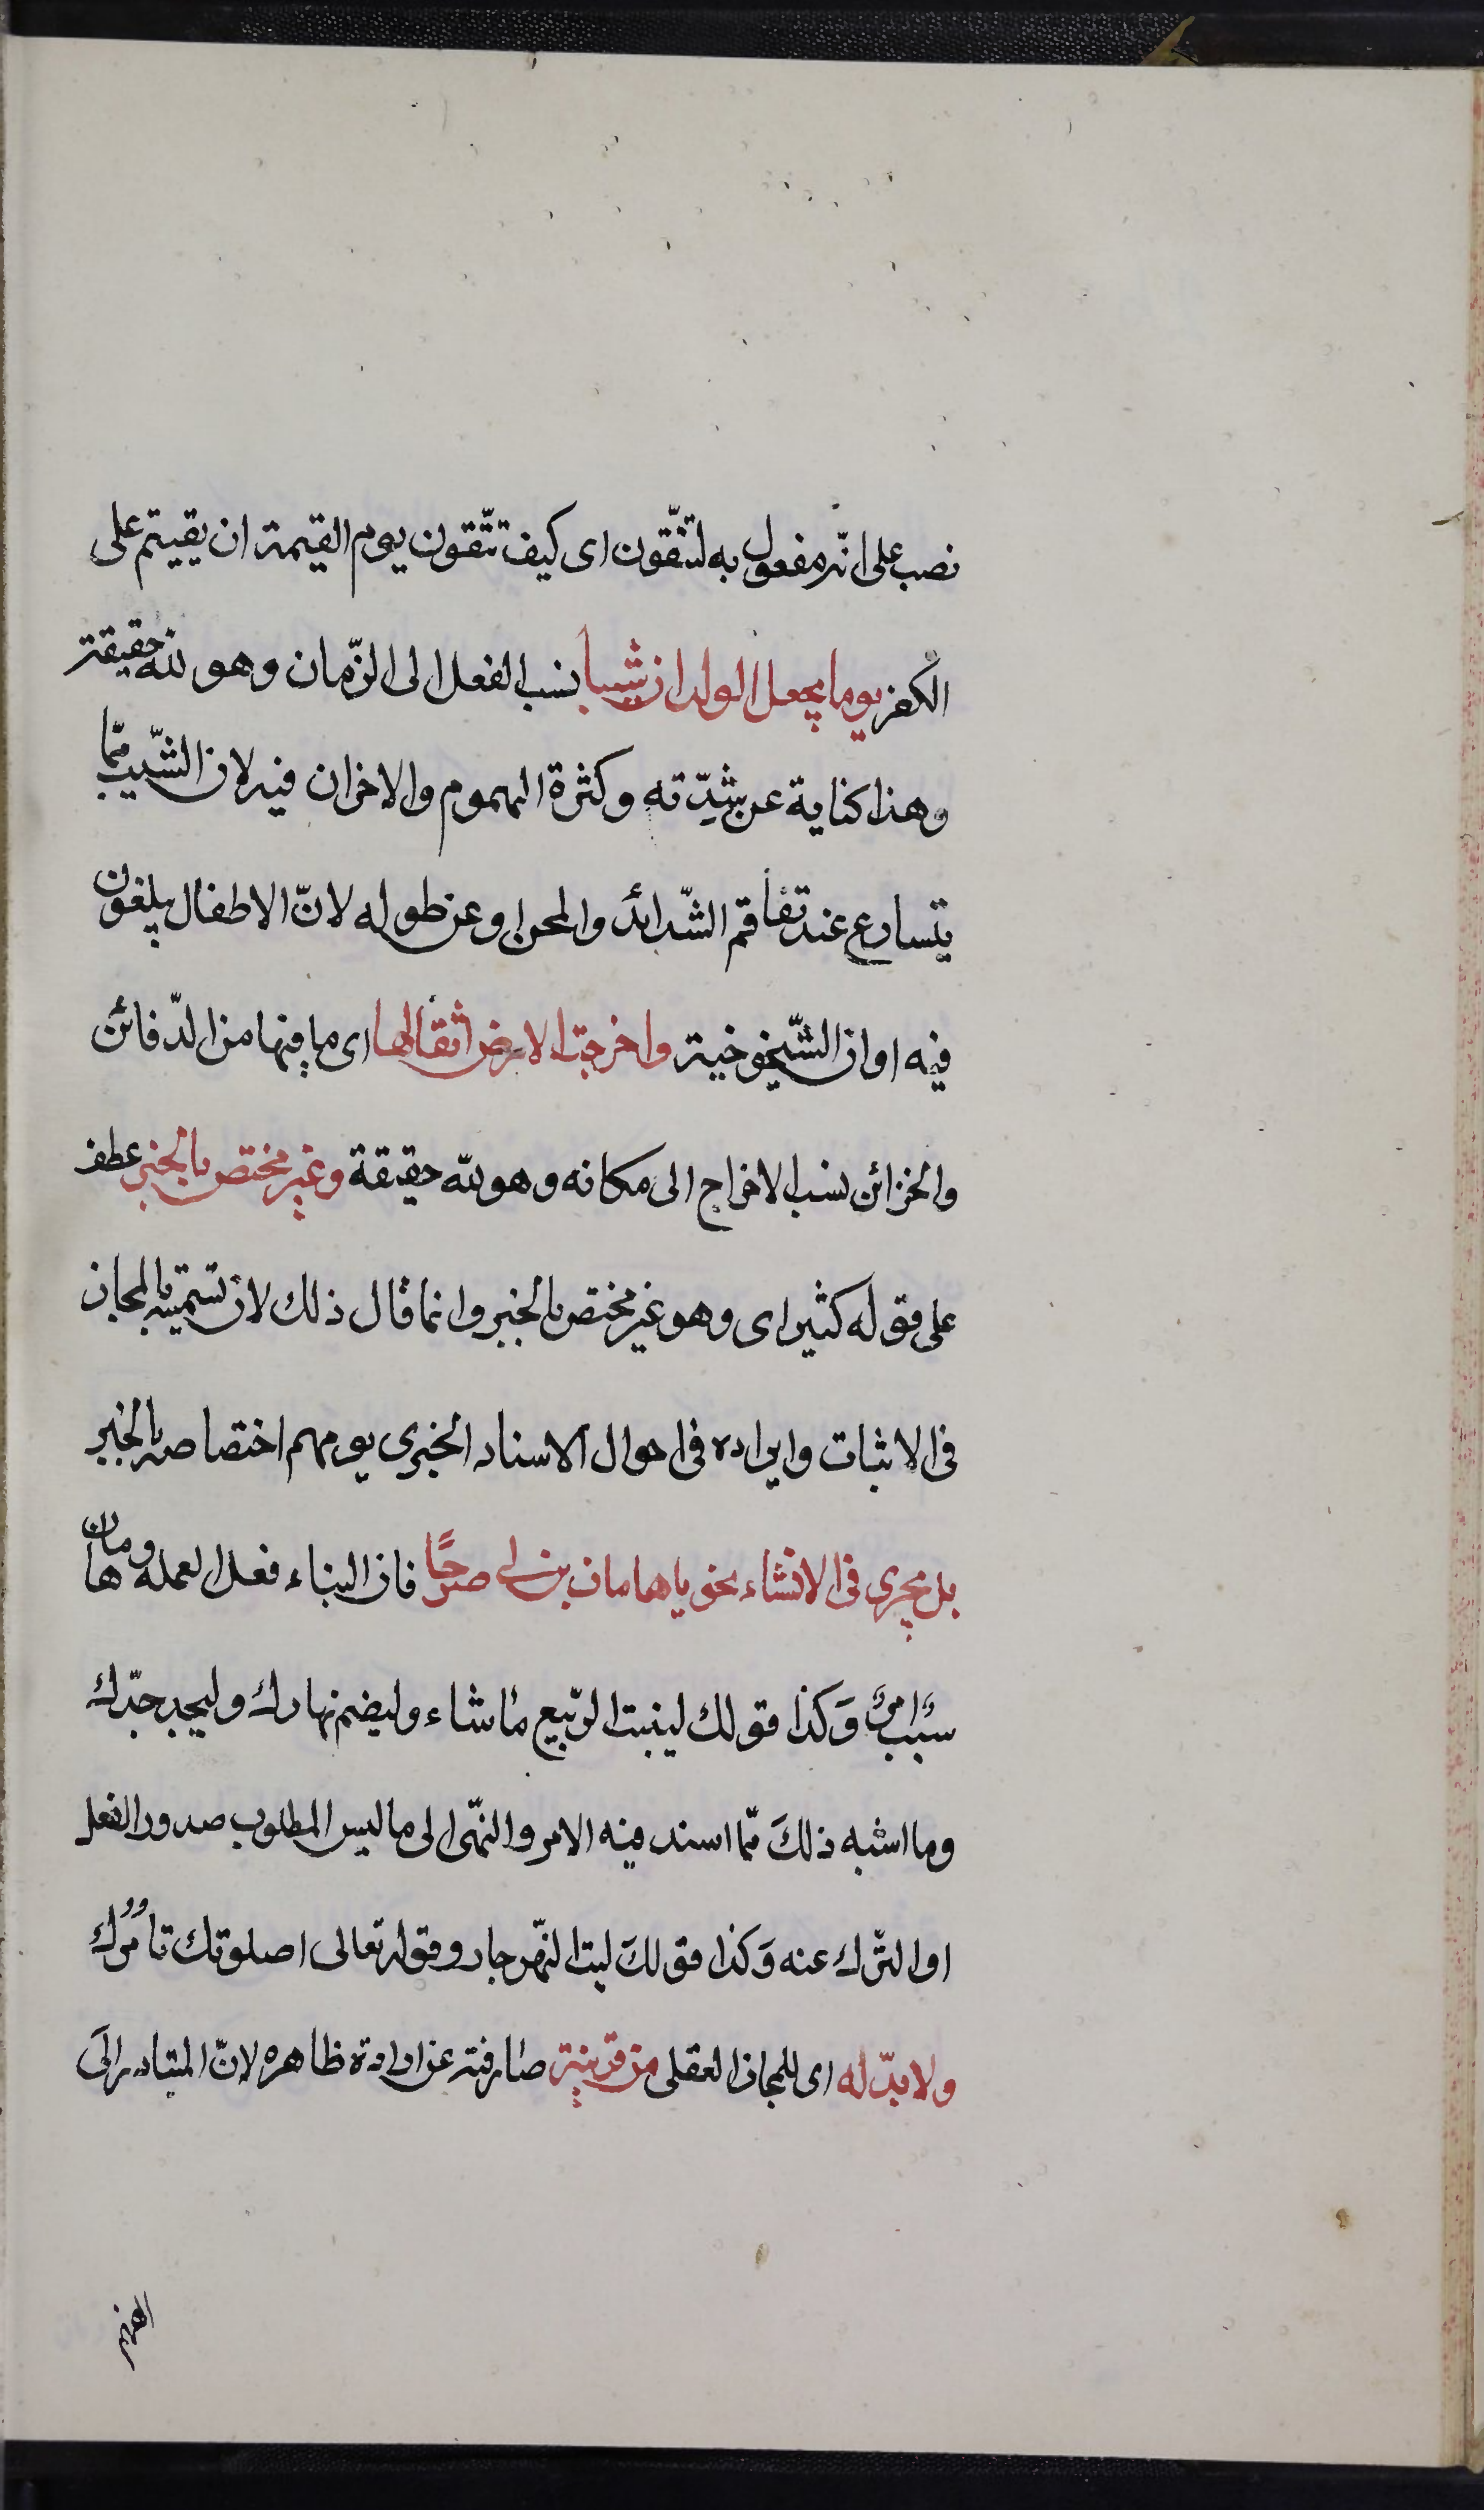 نصب على انّه مفعول به لتتّقون اى كيف تتّقون يوم القيمة ان بقيتم على
الكفر يوما يجعل الولدان شيبا نسب الفعل الى الزّمان وهو لله حقيقة
وهذا كناية عن شدّته وكثرة الهموم والاحزان فيه لان الشّيب ممّا
يتسارع عند تفاقم الشّدائد والمحن او عن طوله لانّ الاطفال يبلغون
فيه اوان الشّيخوخية واخرجت الارض اثقالها اى ما فيها من الدّفائن
والخزائن نسب الاخراج الى مكانه وهو لله حقيقة وغير مختص بالخبر عطف
على قوله كثير اى وهو غير مختص بالخبر وانما قال ذلك لان تسميته بالمجاز
فى الاثبات وايراده فى احوال الاسناد الخبرى يوهم اختصاصه بالخبر
بل يجرى فى الانشاء نحو ياهامان ابن لى صرحًا فان البناء فعل العملة وهامان
سبب امر وَكذا قولك لينبت الرّبيع ما شاء وليصم نهارك وليجد جدّك
وما اشبه ذلكَ ممّا اسند فيه الامر والنّهى الى ما ليس المطلوب صدور الفعل
او التّرك عنه وَكذا قولكَ ليت النّهر جار وقوله تعالى اصلوتك تأمُرك
ولا بدّ له اى للمجاز العقلى من قرينة صارفة عن ارادة ظاهره لانّ المتبادر الَى
الفهم